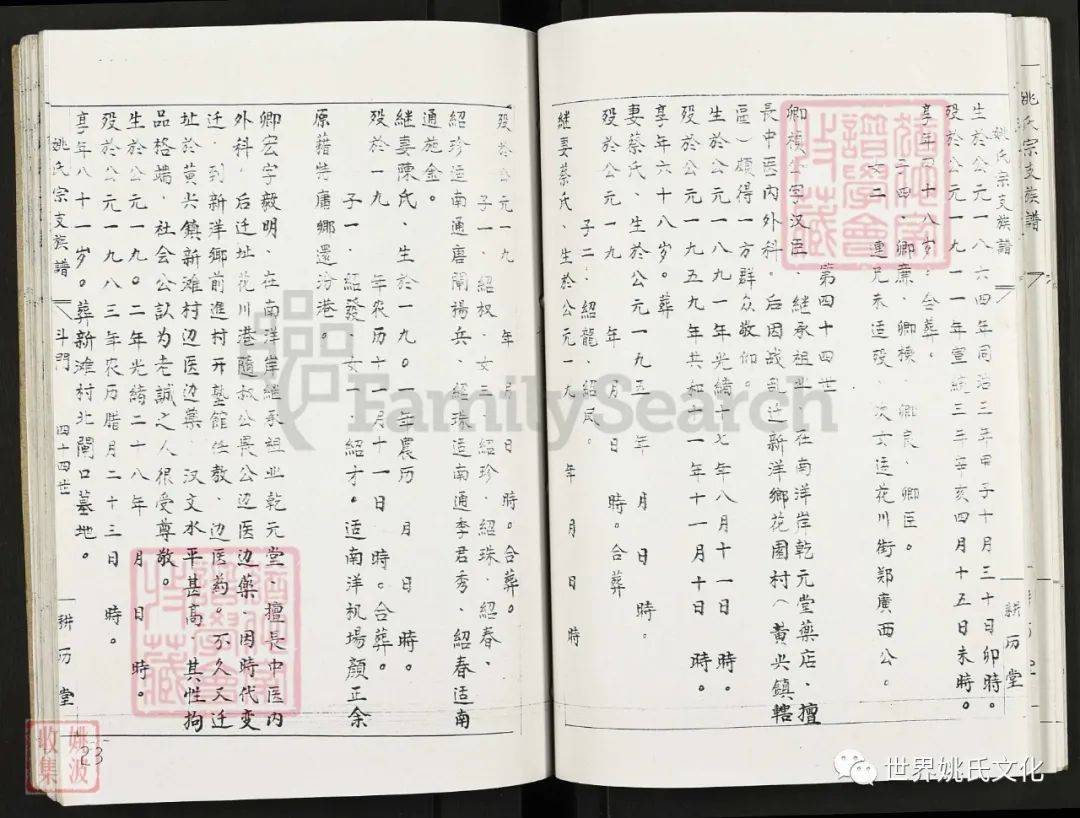 姚氏宗支族譜
姚氏宗支族譜
耕历堂
生於公元一八六四年同治三年甲子十月三十日卯時。
殁於公元一九一一年宣統三年辛亥四月十五日未時。
享年四十八岁。合葬。
子四、卿廉、卿模、卿宸、卿臣。
女二、連兄未适殁、次女适花川街郑廣西公。
第四十四世
卿模公字汉臣、継承祖业、在南洋岸乾元堂藥店、擅
長中医内外科。后因战乱迁新洋鄉花園村（黄尖鎮轄
區）頗得一方群众敬仰。
生於公元一八九一年光緒十七年八月十一日 時。
殁於公元一九五九年共和十一年十一月十日 時。
享年六十八岁。葬
妻蔡氏、生於公元一九五 年 月 日 時。
殁於公元一九 年 月 日 時。合葬
子二、紹龍、紹民。
継妻蔡氏、生於公元一九 年 月 日 時
殁於公元一九 年 月 日 時。合葬。
子一、紹权、女三、紹珍、紹珠、紹春、
紹珍适南通唐閘楊兵、紹珠适南通李君秀、紹春适南
通施金。
継妻陳氏、生於一九〇一年農历 月 日 時。
殁於一九 年农历十一月十一日 時。合葬。
子一、紹發、女一、紹才。适南洋机場顏正余
原藉特庸鄉還汾港。
卿宏字毅明、在南洋岸継承祖业乾元堂、擅長中医内
外科、后迁址花川港隨叔公畏公边医边藥、因時代变
迁、到新洋鄉前進村开塾館任教、边医药。不久又迁
址於黄尖鎮新滩村边医边藥、汉文水平甚高、其性拘
品格端、社会公認为老誠之人很受尊敬。
生於公元一九〇二年光緒二十八年 月 日 時。
殁於公元一九八三年农历腊月二十三日 時。
享年八十一岁。葬新滩村北閘口墓地。
姚氏宗支族譜
斗門
四十四世
耕历堂
23
姚波
收集
FamilySearch
世界姚氏文化